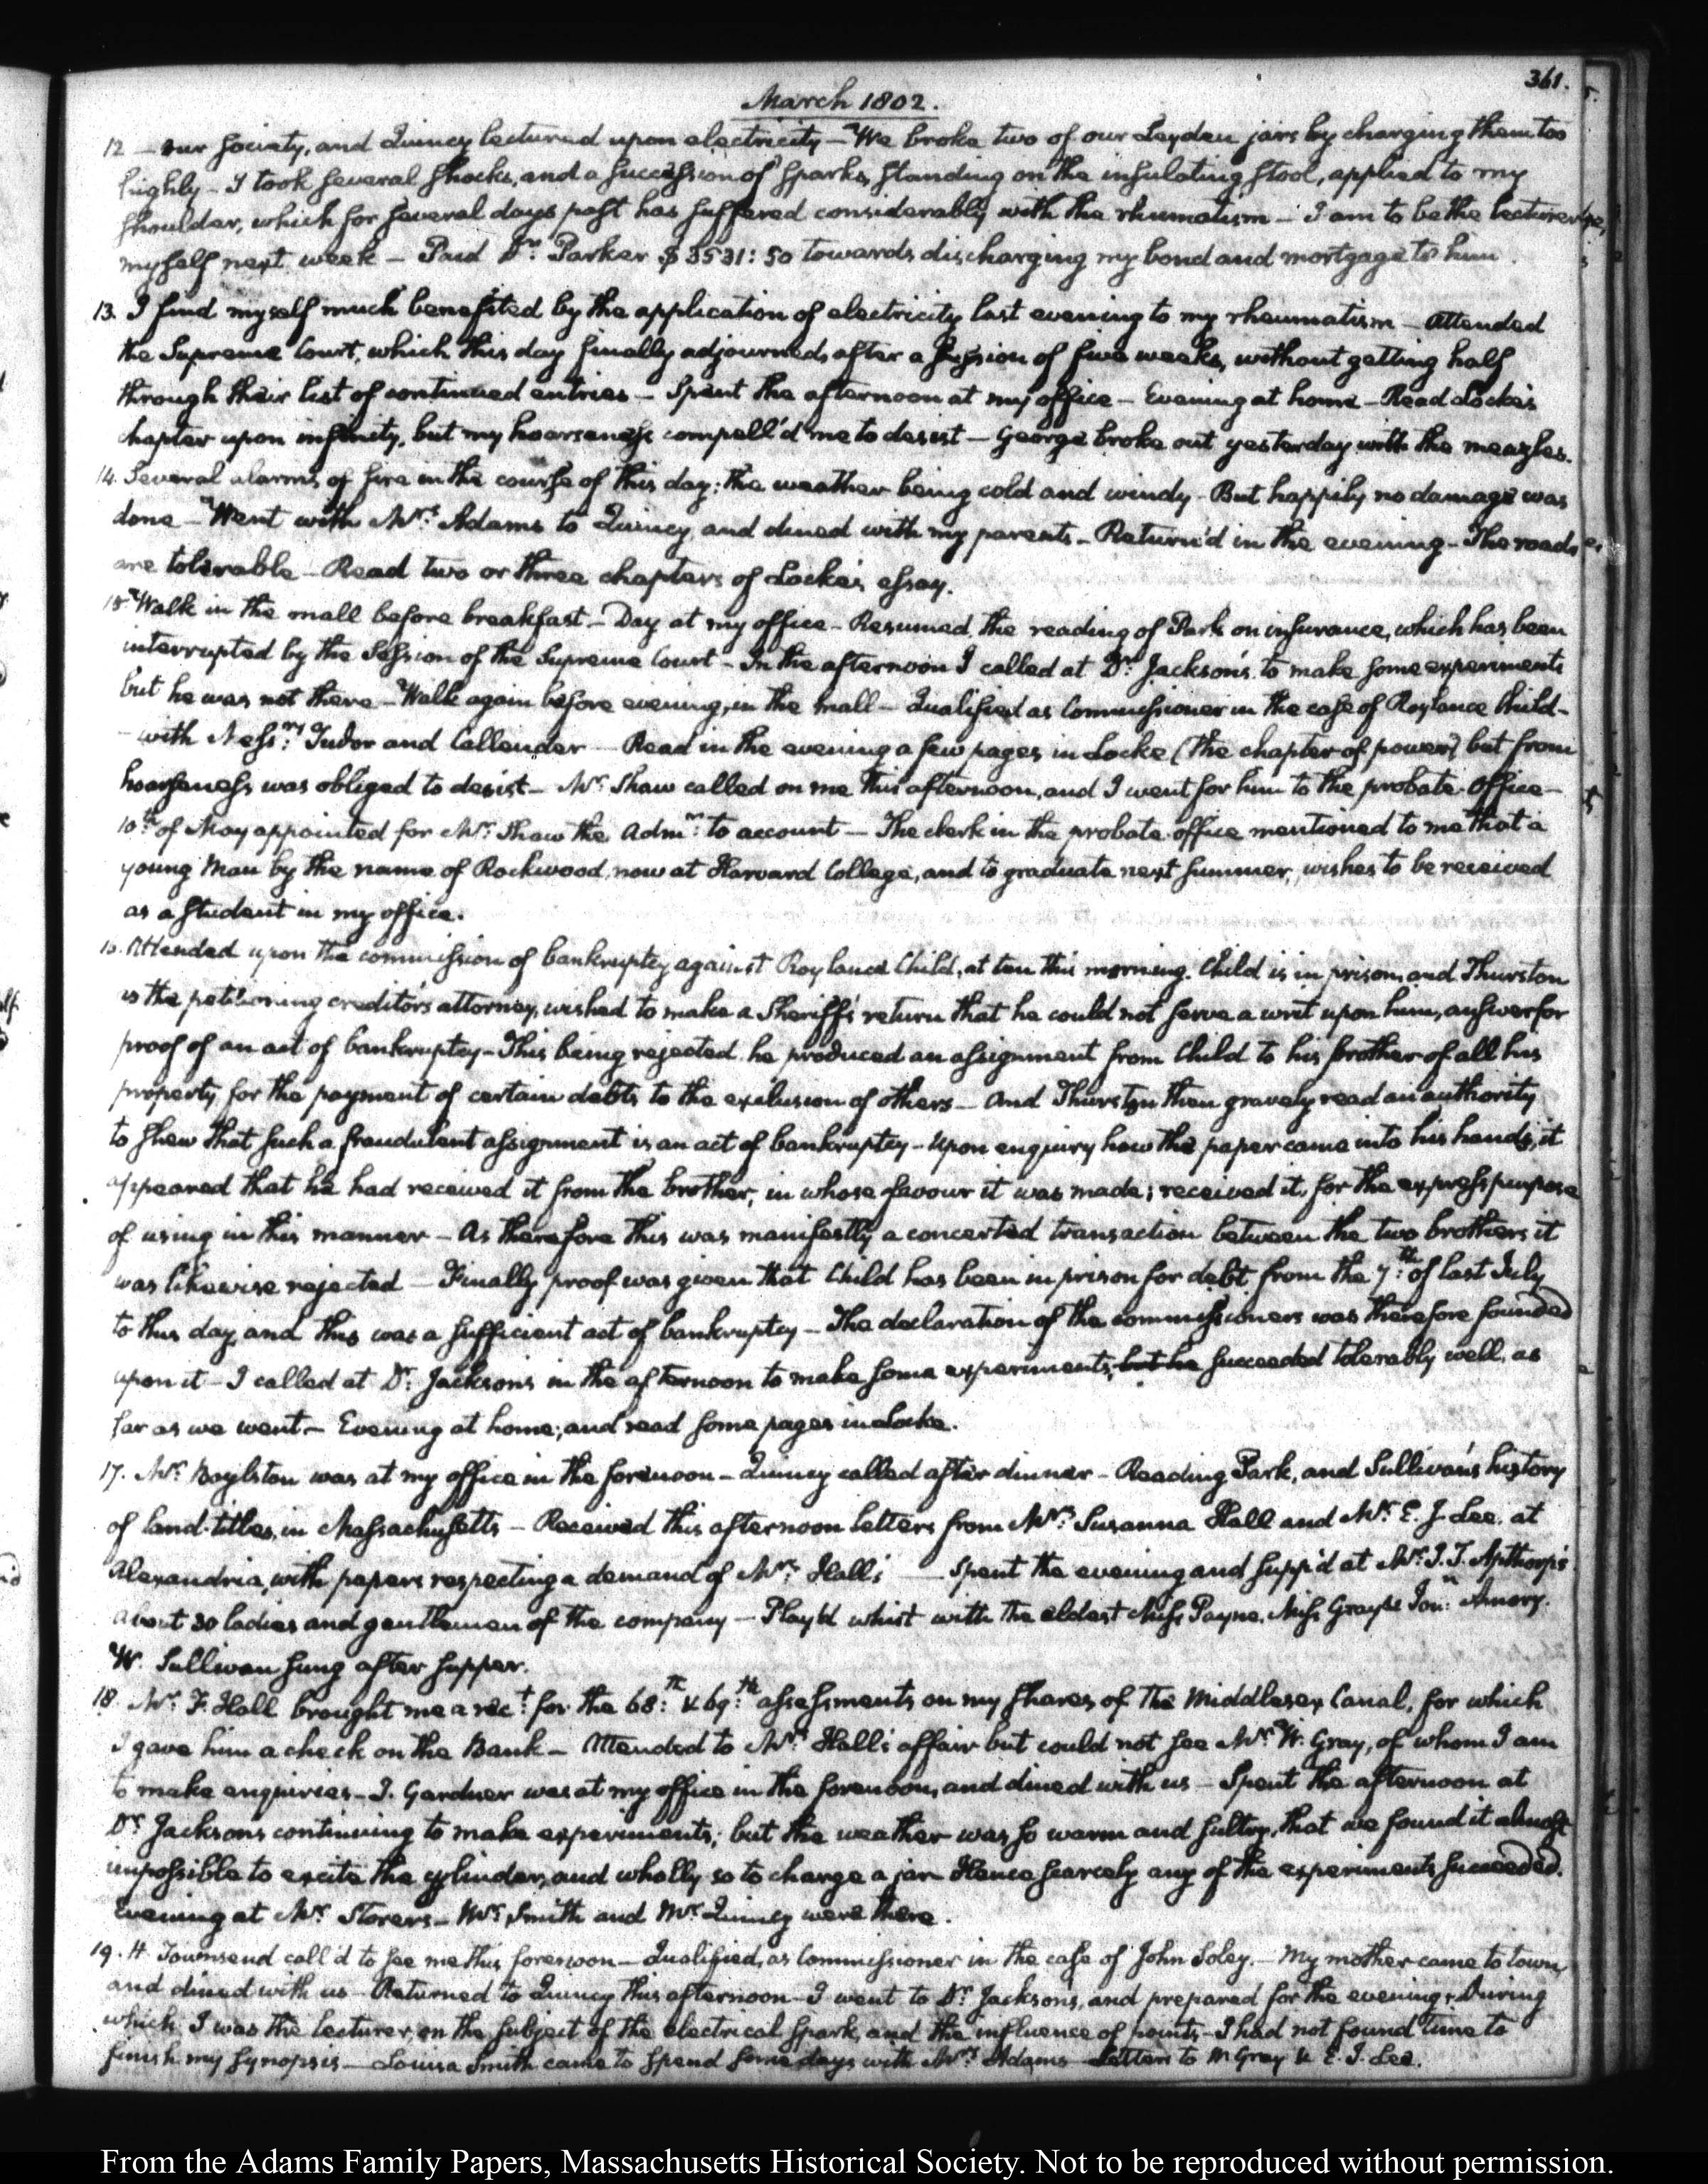 361.
March 1802.
12 — our Society, and Quincy lectured upon electricity — We broke two of our Leyden jars by charging them too
highly — I took several shocks, and a succession of sparks, standing on the insulating stool, applied to my
shoulder, which for several days past has suffered considerably with the rhumatism — I am to be the lecturer
myself next week — Paid Dr: Parker $3531:50 towards discharging my bond and mortgage to him.
13. I find myself much benefited by the application of electricity last evening to my rheumatism — Attended
the Supreme Court, which this day finally adjourned, after a Session of five weeks, without getting half
through their list of continued entries — Spent the afternoon at my office — Evening at home — Read Locke's
chapter upon infinity, but my hoarseness compell'd me to desist — George broke out yesterday with the meazles.
14. Several alarms of fire in the course of this day; the weather being cold and windy — But happily no damage was
done — Went with Mrs: Adams to Quincy and dined with my parents — Return'd in the evening — The roads
are tolerable — Read two or three chapters of Locke's essay.
15. Walk in the mall before breakfast — Day at my office — Resumed the reading of Park on insurance, which has been
interrupted by the Session of the Supreme Court — In the afternoon I called at Dr: Jackson's to make some experiments
but he was not there — Walk again before evening, in the mall — Qualified as Commissioner in the case of Roylance Child —
— with Messrs: Tudor and Callender — Read in the evening a few pages in Locke (the chapter of power) but from
hoarseness was obliged to desist — Mr: Shaw called on me this afternoon, and I went for him to the probate office —
10th of May appointed for Mr: Shaw the Admr: to account — The clerk in the probate office mentioned to me that a
young Man by the name of Rockwood, now at Harvard College, and to graduate next summer, wishes to be received
as a student in my office.
16. Attended upon the commission of bankruptcy against Roylance Child, at ten this morning. Child is in prison, and Thurston
as the petitioning creditor's attorney, wished to make a Sheriff's return that he could not serve a writ upon him, answer for
proof of an act of bankruptcy — This being rejected he produced an assignment from Child to his brother of all his
property for the payment of certain debts to the exclusion of others — And Thurston then gravely read an authority
to shew that such a fraudulent assignment is an act of bankruptcy — Upon enquiry how the paper came into his hands, it
appeared that he had received it from the brother, in whose favour it was made; received it for the express purpose
of using in this manner — As therefore this was manifestly a concerted transaction between the two brothers it
was likewise rejected — Finally proof was given that Child has been in prison for debt from the 7th: of last July
to this day, and this was a sufficient act of bankruptcy — The declaration of the commissioners was therefore founded
upon it — I called at Dr: Jackson's in the afternoon to make some experiments, but he succeeded tolerably well, as
far as we went — Evening at home; and read some pages in Locke.
17. Mr: Boylston was at my office in the forenoon — Quincy called after dinner — Reading Park, and Sullivan's history
of land-titles, in Massachusetts — Received this afternoon letters from Mrs: Susanna Hall and Mr: E. J. Lee, at
Alexandria, with papers respecting a demand of Mrs: Hall's — Spent the evening and supp'd at Mr: J. T. Apthorp's
About 30 ladies and gentlemen of the company — Play'd whist with the eldest Miss Payne, Miss Gray & Jon:n Amory.
W. Sullivan sung after supper.
18. Mr: F. Hall brought me a rect: for the 68:th & 69:th assessments on my shares of the Middlesex Canal, for which
I gave him a check on the Bank — Attended to Mrs: Hall's affair but could not see Mr: W. Gray, of whom I am
to make enquiries — J. Gardner was at my office in the forenoon, and dined with us — Spent the afternoon at
Dr: Jacksons continuing to make experiments; but the weather was so warm and sultry, that we found it almost
impossible to excite the cylinder, and wholly so to charge a jar — Hence scarcely any of the experiments succeeded.
Evening at Mr: Storers — Mrs: Smith and Mr: Quincy were there.
19. H. Townsend call'd to see me this forenoon — Qualified, as Commissioner in the case of John Soley. — My mother came to town,
and dined with us — Returned to Quincy this afternoon — I went to Dr: Jacksons, and prepared for the evening; During
which I was the lecturer, on the subject of the electrical spark, and the influence of points — I had not found time to
finish my synopsis — Louisa Smith came to spend some days with Mrs: Adams — Letters to W Gray & E. J. Lee.
From the Adams Family Papers, Massachusetts Historical Society. Not to be reproduced without permission.